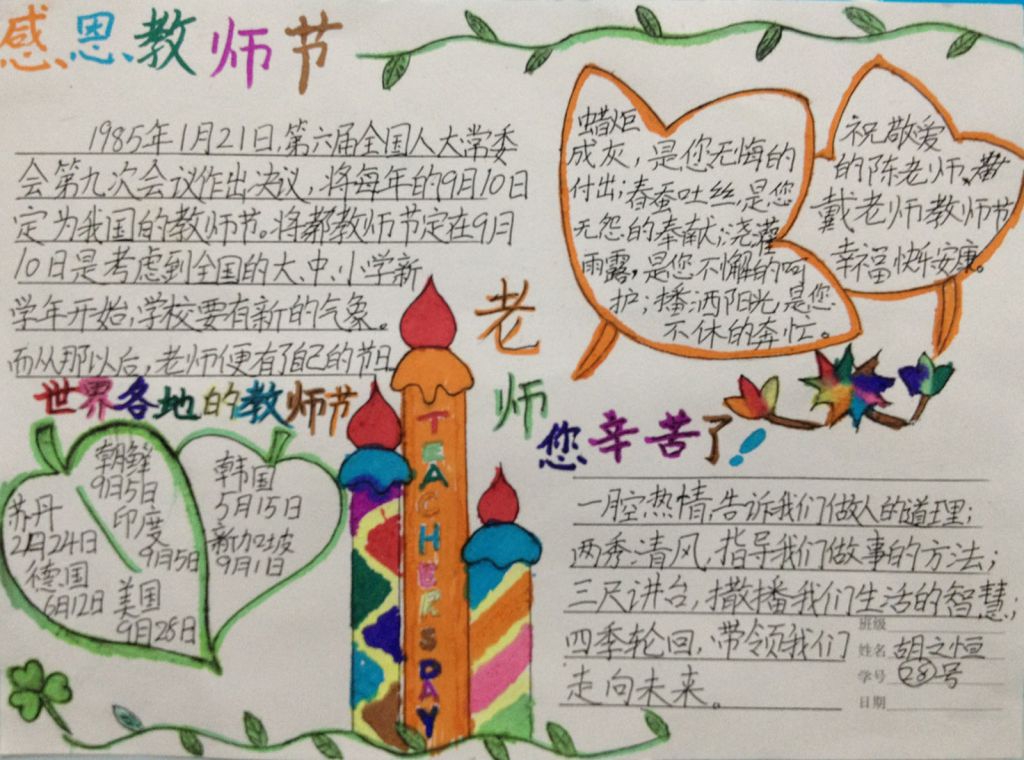 感恩教师节
1985年1月21日,第六届全国人大常委
会第九次会议作出决议,将每年的9月10日
定为我国的教师节。将教师节定在9月
10日是考虑到全国的大、中、小学新
学年开始,学校要有新的气象。
而从那以后,老师便有了自己的节日
蜡炬
成灰,是您无悔的
付出;春蚕吐丝,是您
无怨的奉献;浇灌
雨露,是您不懈的呵
护;播洒阳光,是您
不休的奔忙。
祝敬爱
的陈老师、
戴老师教师节
幸福快乐安康。
老
师
您辛苦了!
世界各地的教师节
朝鲜
9月5日
印度
9月5日
苏丹
2月24日
德国
6月12日
美国
9月28日
韩国
5月15日
新加坡
9月1日
TEACHERSDAY
一月空热情,告诉我们做人的道理;
两秀清风,指导我们做事的方法;
三尺讲台,撒播我们生活的智慧;
四季轮回,带领我们
走向未来。
班级
姓名 胡之恒
学号 28号
日期